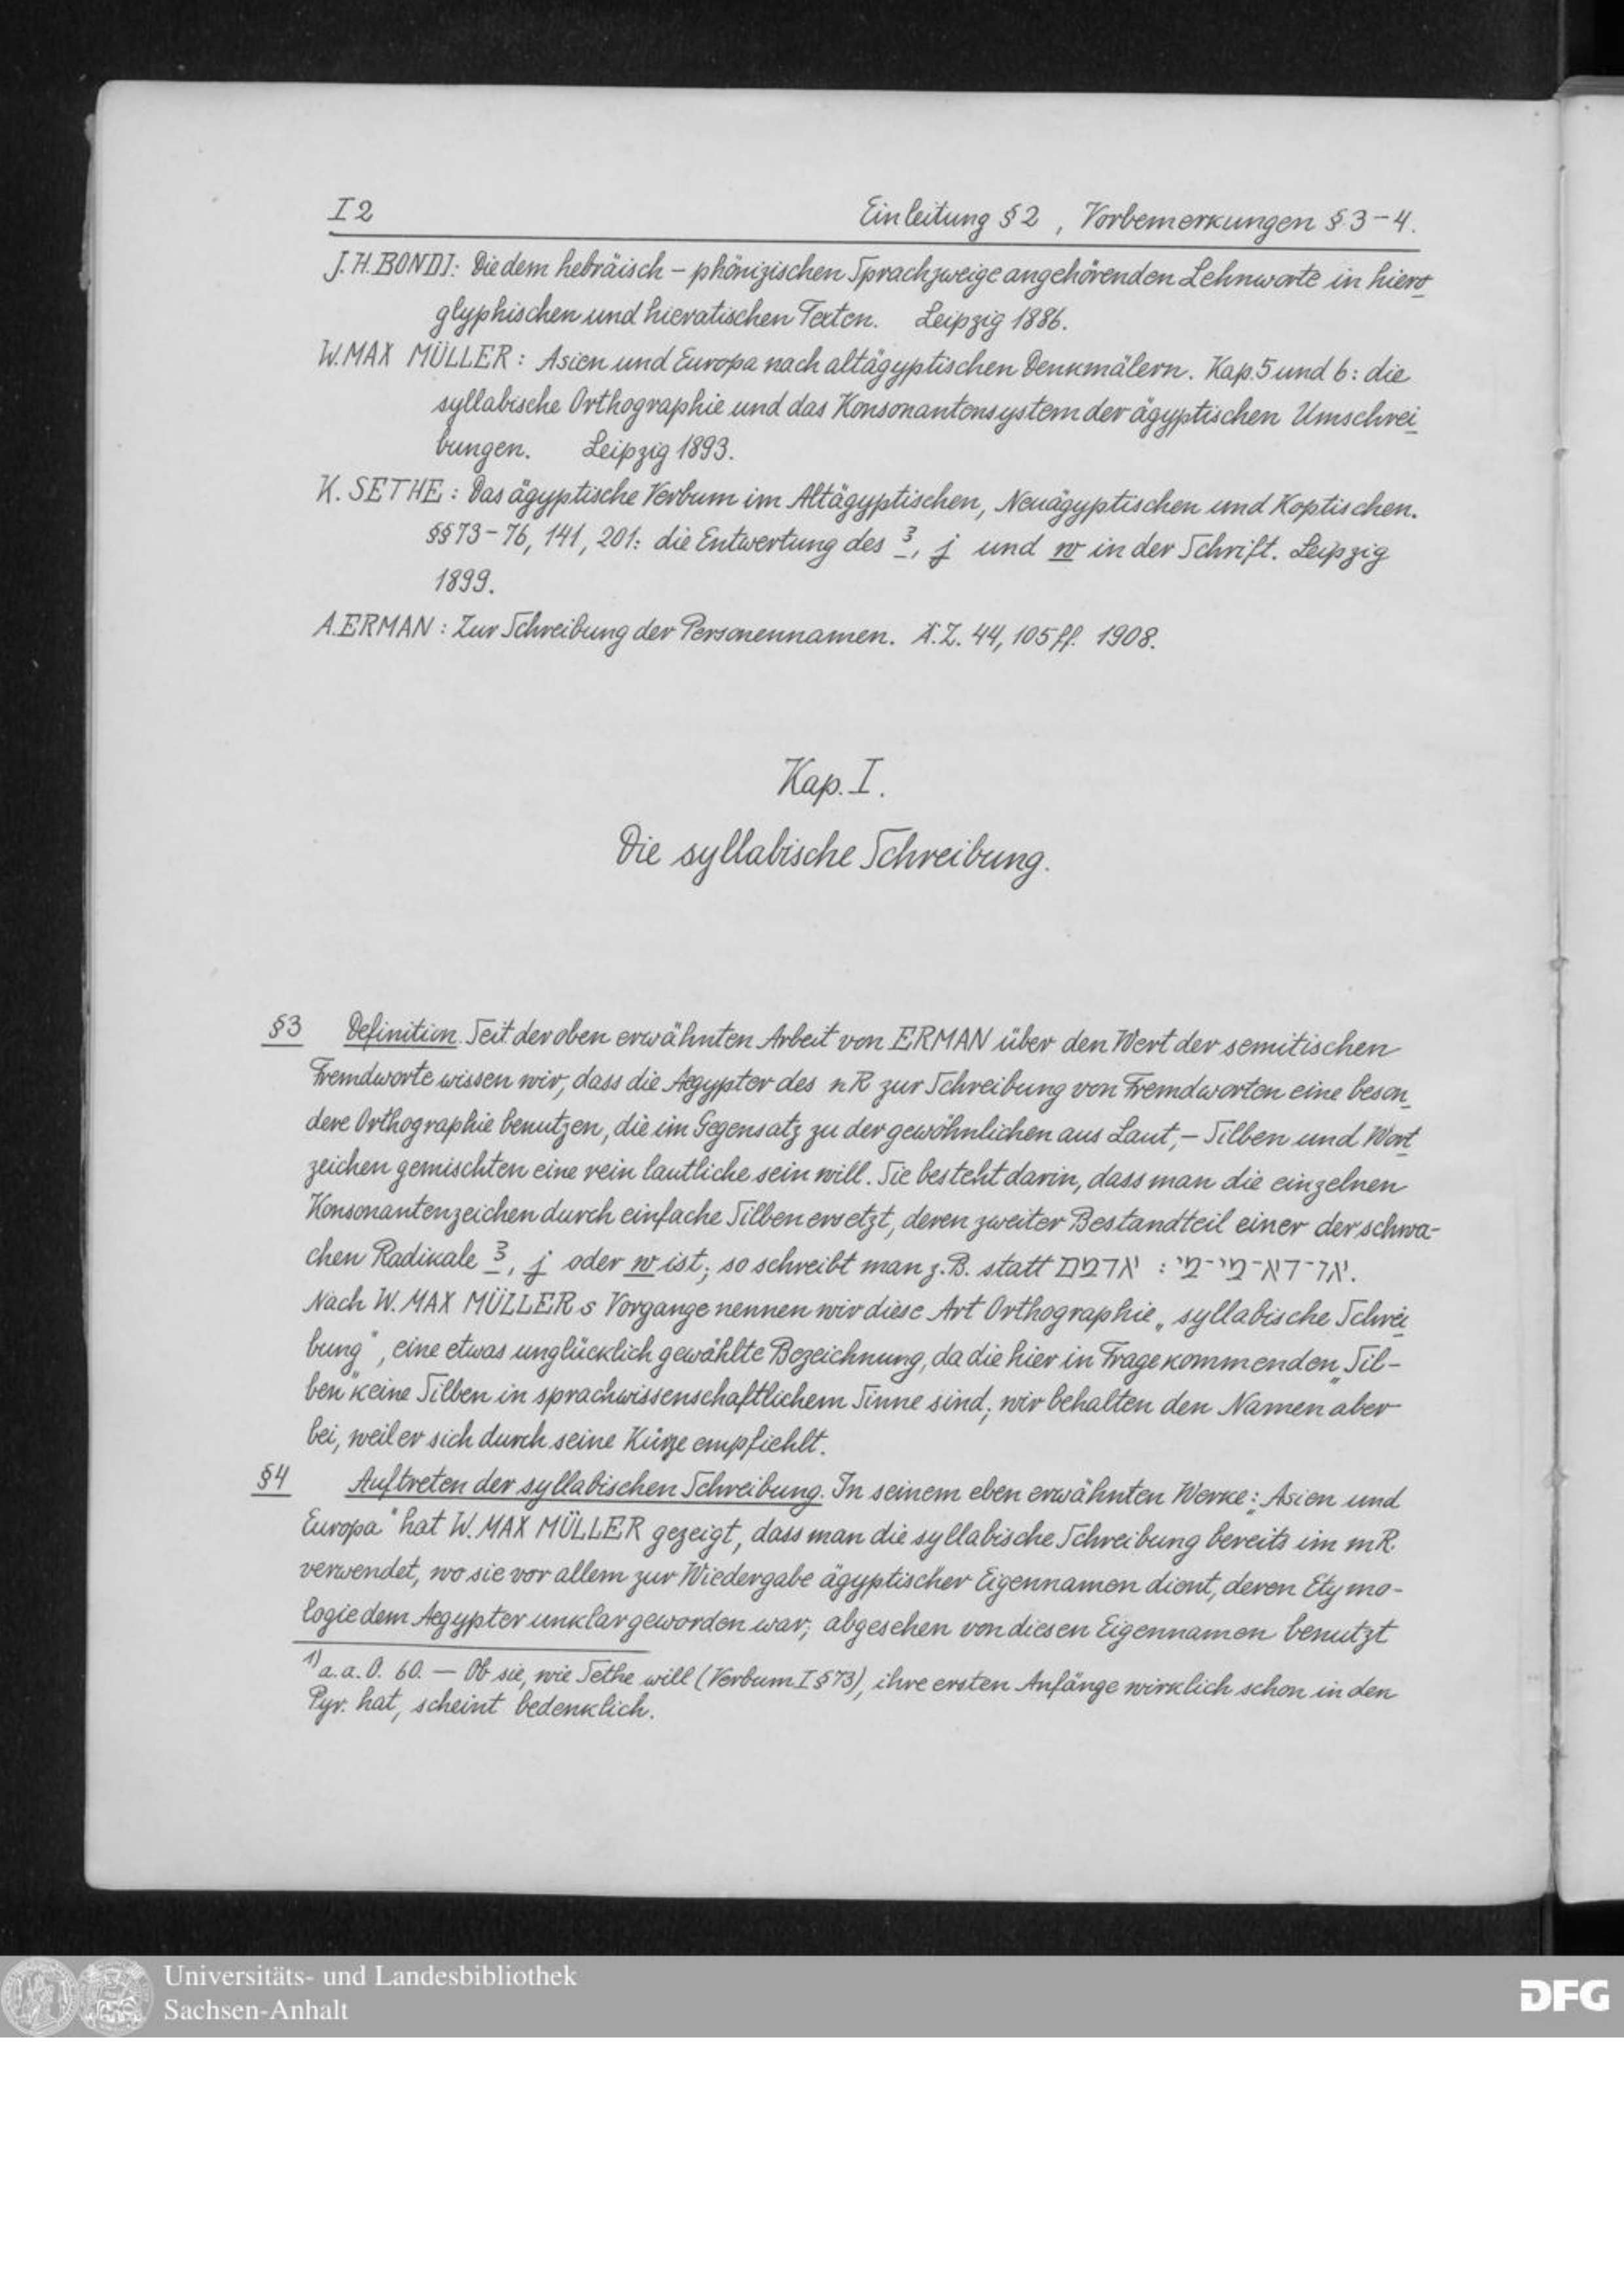 I 2 Einleitung § 2 , Vorbemerkungen § 3–4.
J. H. BONDI: Die dem hebräisch – phönizischen Sprachzweige angehörenden Lehnworte in hiero
glyphischen und hieratischen Texten. Leipzig 1886.
W. MAX MÜLLER: Asien und Europa nach altägyptischen Denkmälern. Kap. 5 und 6: die
syllabische Orthographie und das Konsonantensystem der ägyptischen Umschrei
bungen. Leipzig 1893.
K. SETHE: Das ägyptische Verbum im Altägyptischen, Neuägyptischen und Koptischen.
§§ 73–76, 141, 201: die Entwertung des ꜣ, j und w in der Schrift. Leipzig
1899.
A. ERMAN: Zur Schreibung der Personennamen. Ä. Z. 44, 105 ff. 1908.
Kap. I.
Die syllabische Schreibung.
§3 Definition. Seit der oben erwähnten Arbeit von ERMAN über den Wert der semitischen
Fremdworte wissen wir, dass die Aegypter des nR zur Schreibung von Fremdworten eine beson
dere Orthographie benutzen, die im Gegensatz zu der gewöhnlichen aus Laut,– Silben und Wort
zeichen gemischten eine rein lautliche sein will. Sie besteht darin, dass man die einzelnen
Konsonantenzeichen durch einfache Silben ersetzt, deren zweiter Bestandteil einer der schwa-
chen Radikale ꜣ, j oder w ist; so schreibt man z. B. statt אדמם : או־דא־מי־מי.
Nach W. MAX MÜLLERs Vorgange nennen wir diese Art Orthographie „syllabische Schrei
bung", eine etwas unglücklich gewählte Bezeichnung, da die hier in Frage kommenden „Sil-
ben" keine Silben in sprachwissenschaftlichem Sinne sind; wir behalten den Namen aber
bei, weil er sich durch seine Kürze empfiehlt.
§4 Auftreten der syllabischen Schreibung. In seinem eben erwähnten Werke: „Asien und
Europa" hat W. MAX MÜLLER gezeigt, dass man die syllabische Schreibung bereits im mR.
verwendet, wo sie vor allem zur Wiedergabe ägyptischer Eigennamen dient, deren Etymo-
logie dem Aegypter unklar geworden war; abgesehen von diesen Eigennamen benutzt
1) a. a. O. 60. — Ob sie, wie Sethe will (Verbum I § 73), ihre ersten Anfänge wirklich schon in den
Pyr. hat, scheint bedenklich.
Universitäts- und Landesbibliothek
Sachsen-Anhalt
DFG